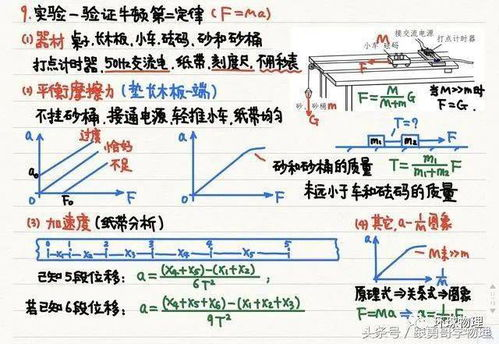 9.实验一验证牛顿第二定律(F=ma)
(1)器材 桌子,长木板,小车,砝码,砂和砂桶
打点计时器,50Hz交流电,纸带,刻度尺,不用秒表
接交流电源
打点计时器
小车 砝码
M
F
砂、砂桶m
G
F=M/(M+m) G
当M>>m时
F=G.
(2)平衡摩擦力(垫长木板一端)
不挂砂桶,接通电源,轻推小车,纸带均匀
a
过度
恰好
不足
a₀
F₀
F
a
F
砂和砂桶的质量
未远小于车和砝码的质量
T=?
m₁
m₂
F
T=m₁/(m₁+m₂) F
(3)加速度(纸带分析)
0 1 2 3 4 5
x₁ x₂ x₃ x₄ x₅
已知5段位移: a=((x₄+x₅)-(x₁+x₂))/6T²;
若已知6段位移: a=((x₄+x₅+x₆)-(x₁+x₂+x₃))/9T²
(4)其它,a-1/M图象
a
1/M
原理式⇒关系式⇒图象
F=Ma ⇒ a=1/M F